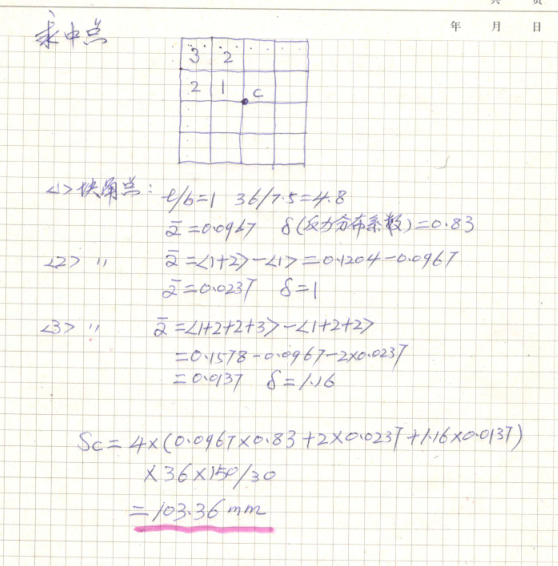 共 页
年 月 日
求中点
3 2
2 1 c
<1>块角点: l/b=1 36/7.5=4.8
ᾱ=0.0967 δ(反力分布系数)=0.83
<2> 〃 ᾱ=<1+2>-<1>=0.1204-0.0967
ᾱ=0.0237 δ=1
<3> 〃 ᾱ=<1+2+2+3>-<1+2+2>
=0.1578-0.0967-2×0.0237
=0.0137 δ=1.16
Sc=4×(0.0967×0.83+2×0.0237+1.16×0.0137)
×36×150/30
=103.36mm